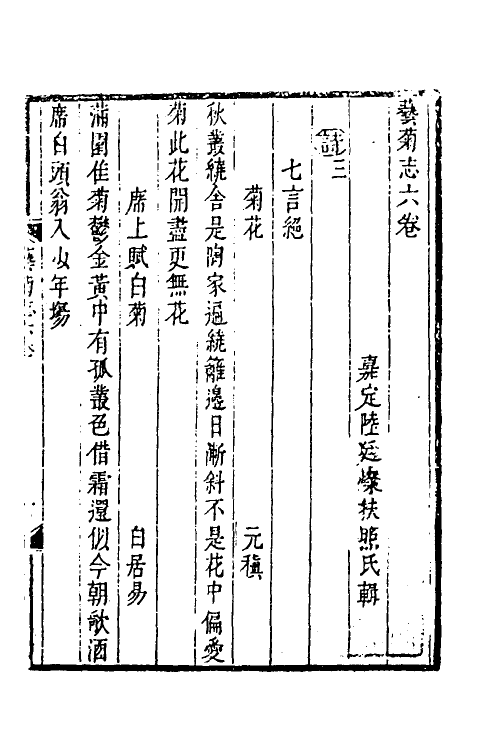 藝菊志六卷
嘉定陸廷燦扶照氏輯
詩三
七言絕
菊花 元稹
秋叢繞舍是陶家遍繞籬邊日漸斜不是花中偏愛
菊此花開盡更無花
席上賦白菊 白居易
滿園佳菊鬱金黃中有孤叢色借霜還似今朝歌酒
席白頭翁入少年場